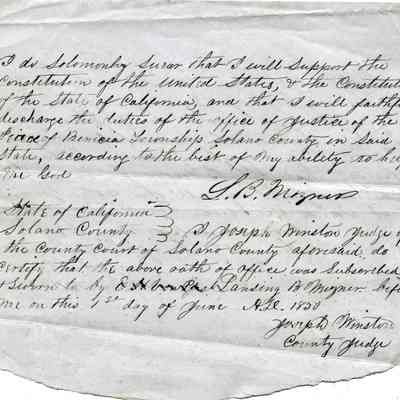 I do Solomonly Swear that I will Support the
Constitution of the United States, & the Constitut
of the State of California, and that I will faithf
discharge the duties of the office of Justice of the
Peace of Benicia Township Solano County in Said
State, according to the best of my ability so hel
me God
L. B. Mizner
State of California
Solano County I Joseph Winston Judge o
the County Court of Solano County aforesaid, do
certify that the above oath of office was Subscribed
& Sworn to by Lansing B Mizner befo
me on this 1st day of June A.D. 1850
Joseph Winston
County Judge